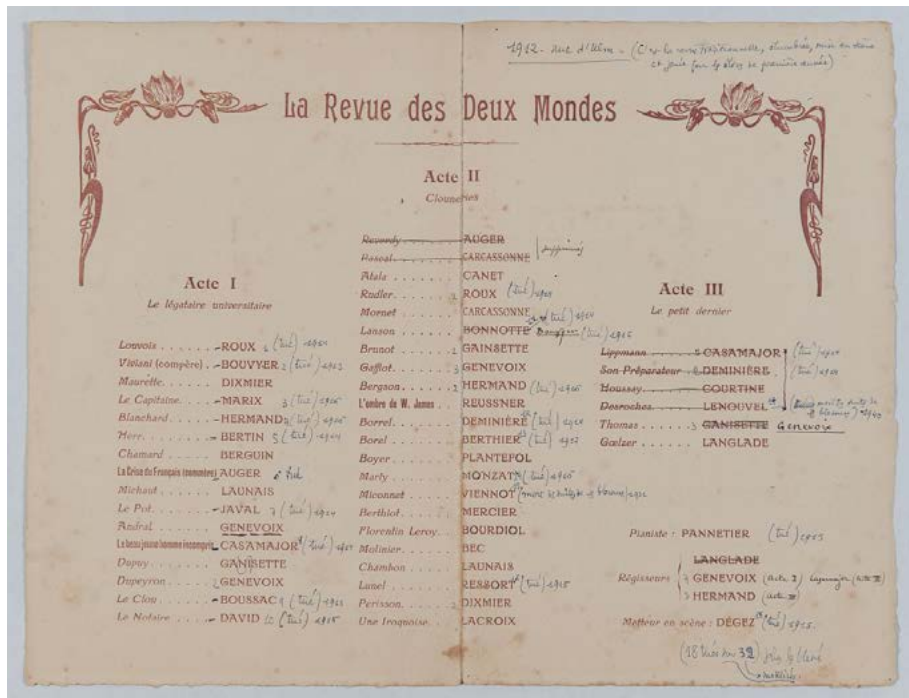 1912 - rue d'Ulm - (C'est la revue traditionnelle, mise en scène
et jouée par les élèves de première année)
La Revue des Deux Mondes
Acte I
Le légataire universitaire
Louvois ROUX 1 (tué) 1914
Viviani (compère) BOUVYER 2 (tué)
Maurette DIXMIER
Le Capitaine MARIX 3 (tué)
Blanchard HERMAND (tué)
Herr BERTIN 5 (tué) 1914
Chamard BERGUIN
La Crise du Français (commère) AUGER 6 tué
Michaut LAUNAIS
Le Pot JAVAL 7 (tué) 1914
Andral GENEVOIX
Le beau jeune homme incompris CASAMAJOR (tué)
Dupuy GANISETTE
Dupeyron GENEVOIX
Le Clou BOUSSAC (tué)
Le Notaire DAVID (tué) 1915
Acte II
Clouneries
Reverdy AUGER
Pascal CARCASSONNE
supprimés
Atala CANET
Rudler ROUX (tué)
Mornet CARCASSONNE (tué)
Lanson BONNOTTE (tué)
Brunot 2 GAINSETTE
Gaffiot 3 GENEVOIX
Bergson 2 HERMAND (tué)
L'ombre de W. James REUSSNER
Borrel DEMINIÈRE (tué)
Borel BERTHIER (tué)
Boyer PLANTEFOL
Marty MONZAT (tué)
Miconnat VIENNOT
Berthiot MERCIER
Florentin Leroy BOURDIOL
Molinier BEC
Chambon LAUNAIS
Lunel RESSORT (tué) 1915
Perisson DIXMIER
Une Iroquoise LACROIX
Acte III
Le petit dernier
Lippmann CASAMAJOR (tué)
Son Préparateur DEMINIÈRE (tué)
Houssay COURTINE
Desroches LENOUVEL
Thomas 3 GANISETTE Genevoix
Gœlzer LANGLADE
Pianiste : PANNETIER (tué)
LANGLADE
Régisseurs GENEVOIX (Acte I) Casamajor (acte II)
HERMAND (acte III)
Metteur en scène : DÉGEZ (tué) 1915
(18 tués sur 32)